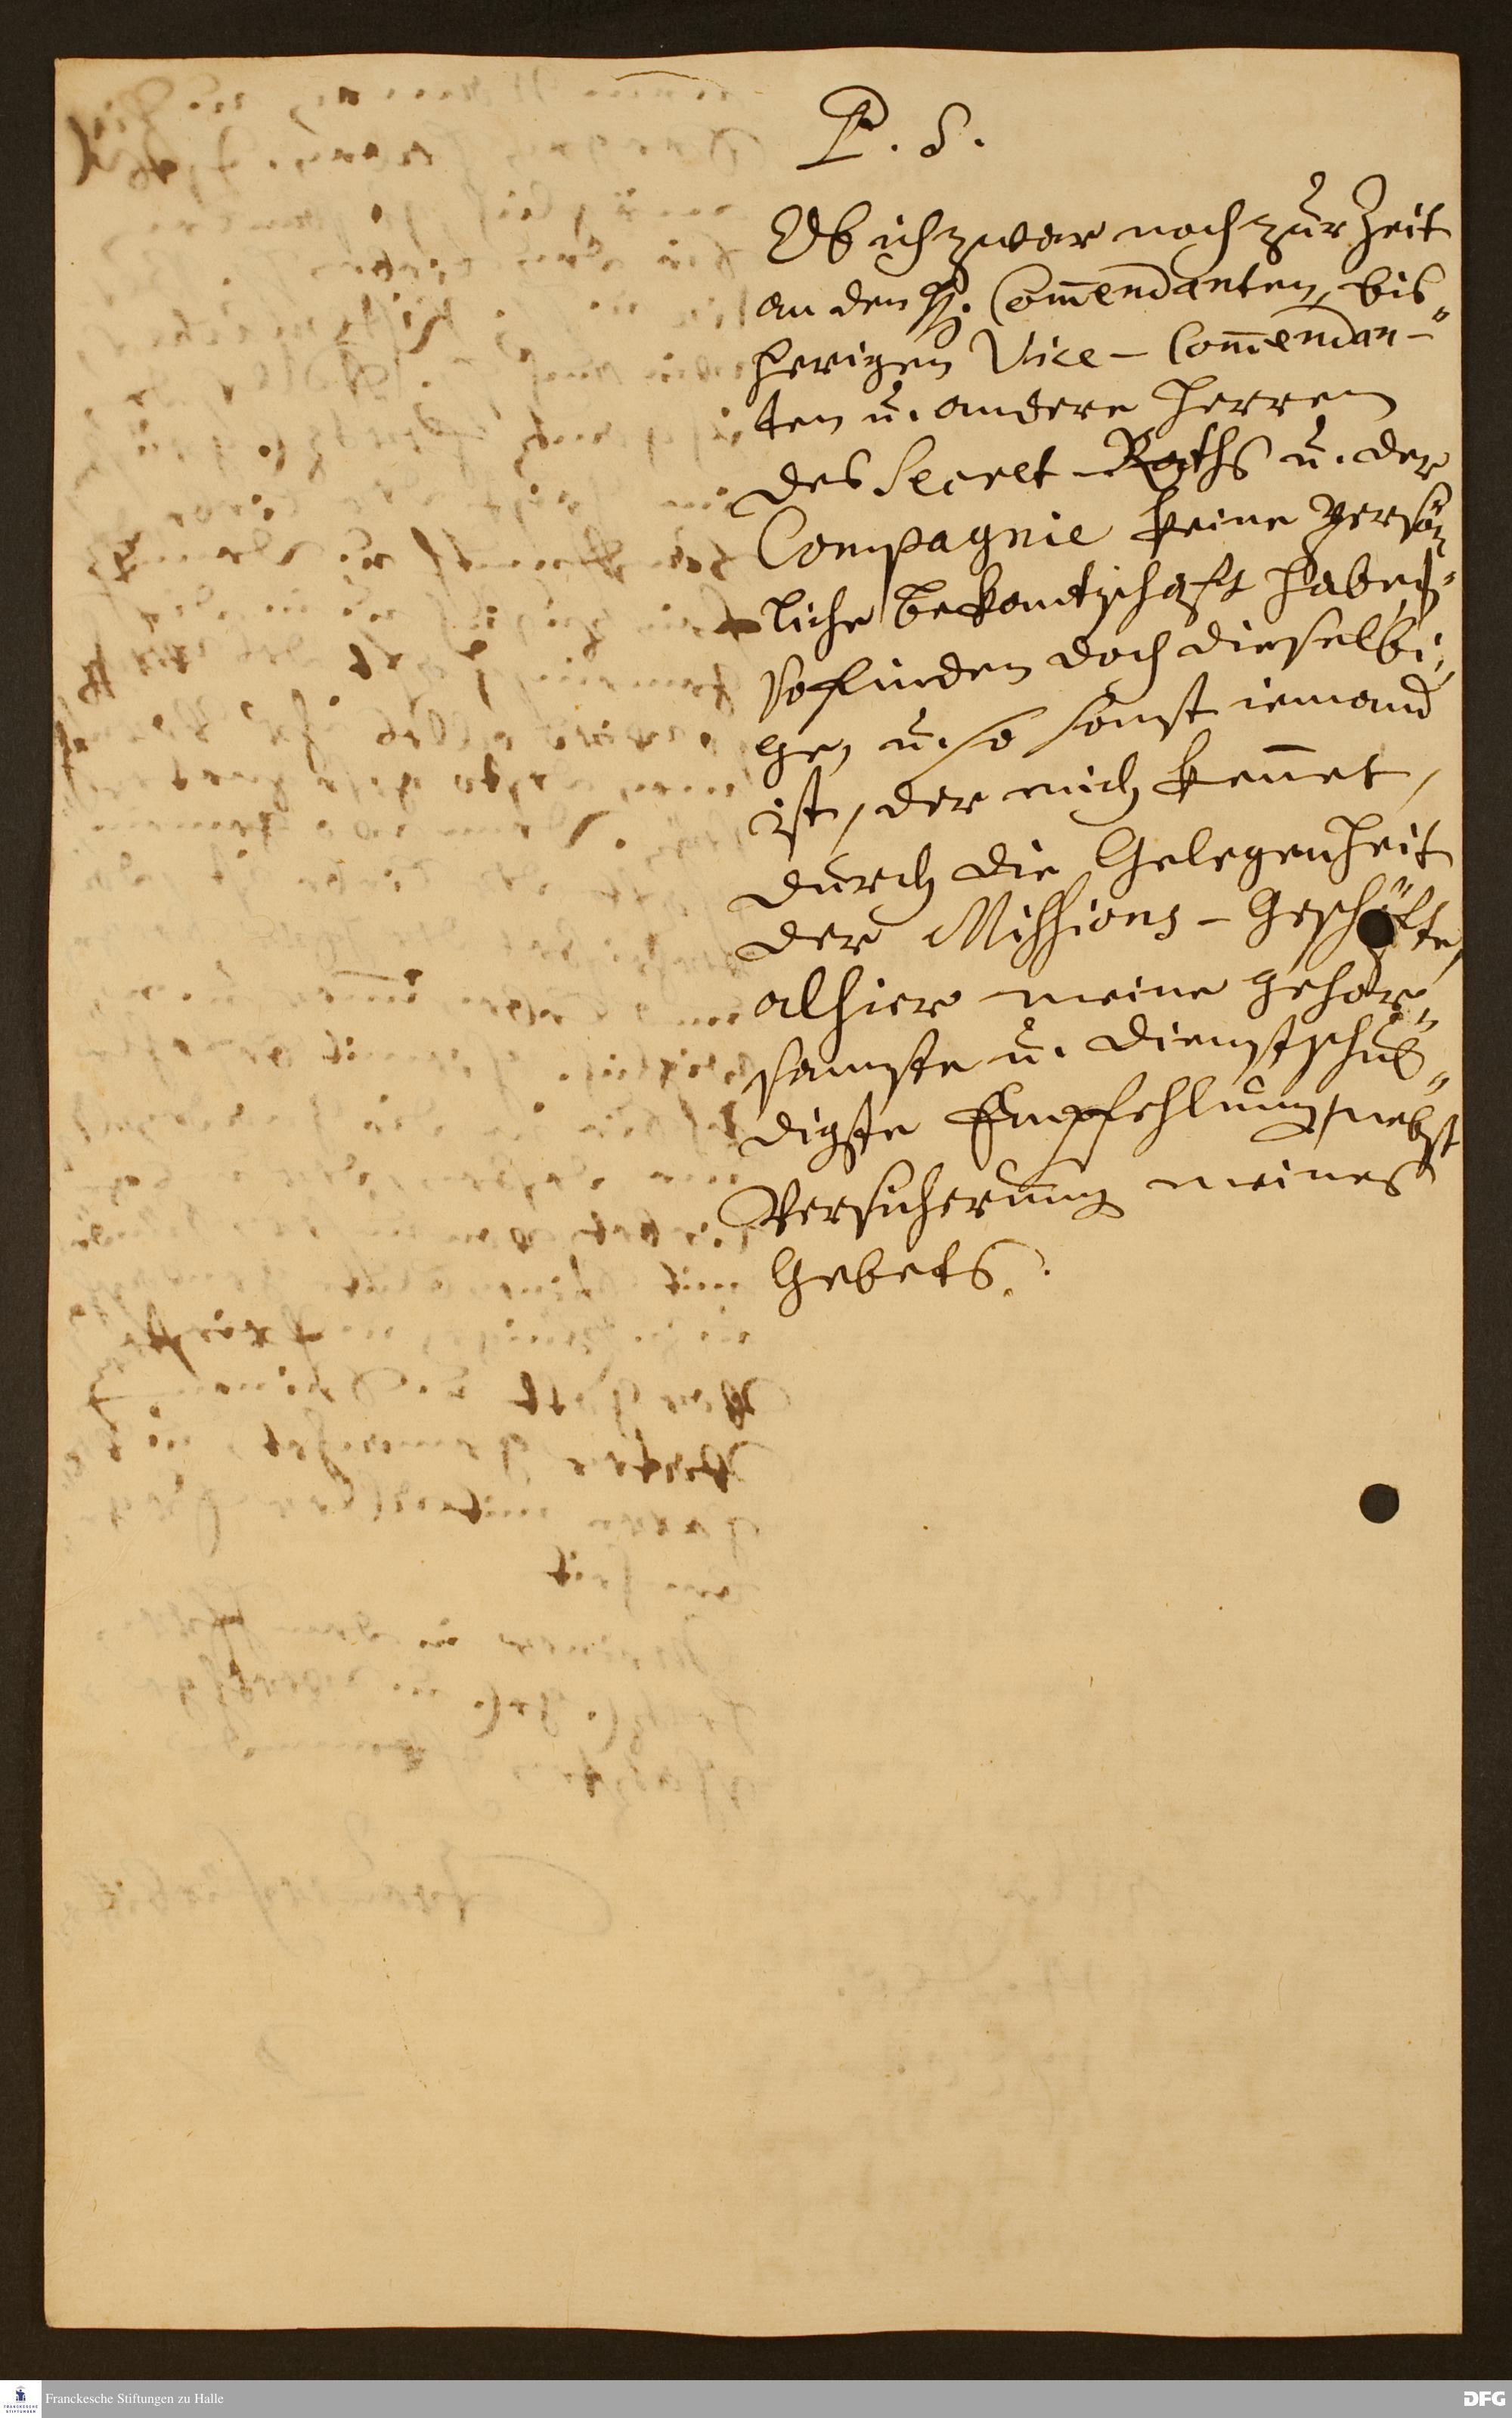 P. S.
Ob ich zwar noch zur Zeit
an den H. Com̄endanten, bis
herigen Vice-Com̄endan-
ten u. andere Herren
des Secret-Raths u. der
Compagnie keine persön
liche bekantschaft habe,
so finden doch dieselbi,
gen u. so sonst iemand
ist, der mich kennet,
durch die Gelegenheit
der Missions-Geschäfte,
alhier meine gehor,
samste u. dienstschul
digste Empfehlung, nebst
Versicherung meines
Gebets.
Franckesche Stiftungen zu Halle
DFG